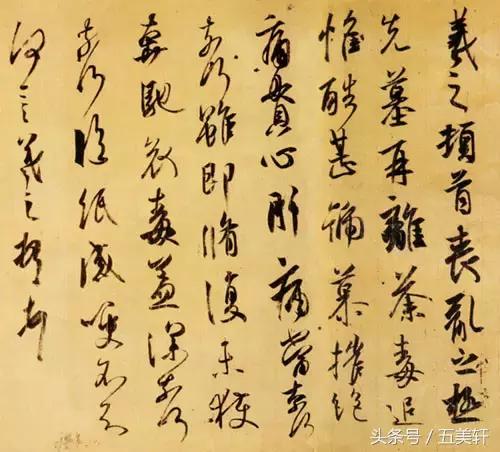 羲之頓首喪亂之極
先墓再離荼毒追
惟酷甚號慕摧絕
痛貫心肝痛當奈何
奈何雖即脩復未獲
奔馳哀毒益深奈何
奈何臨紙感哽不知
何言羲之頓首頓首
头条号 / 五美轩